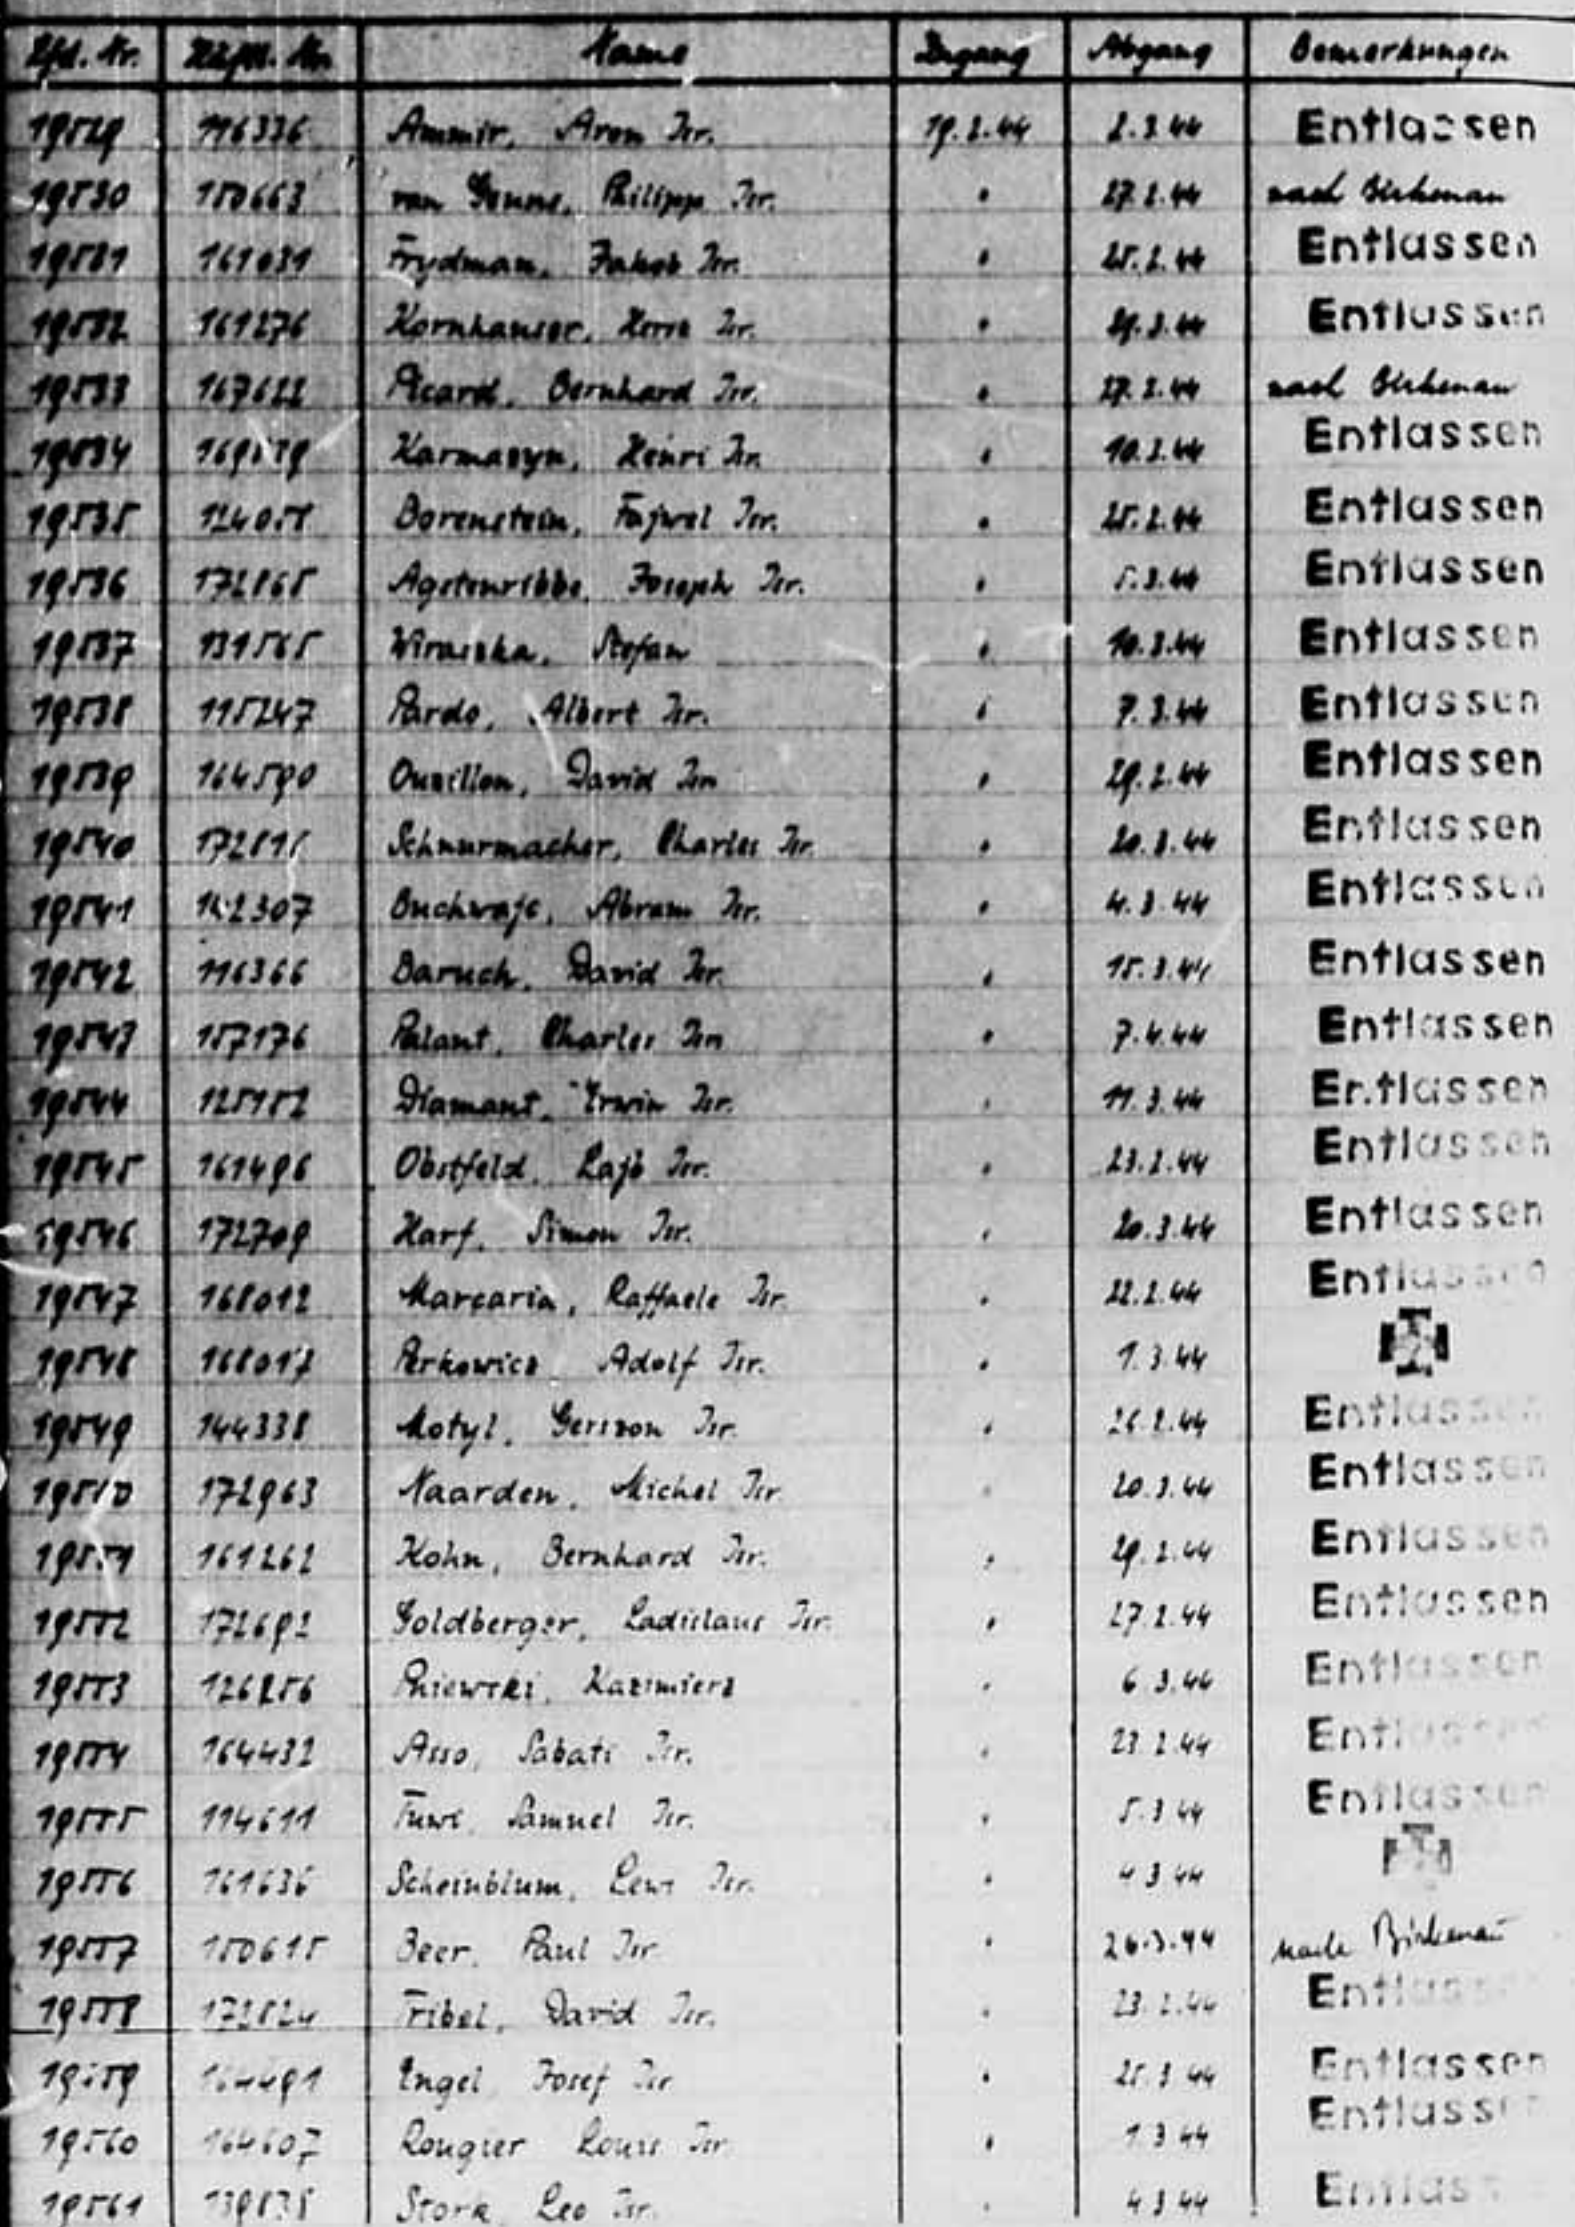 Lfd. Nr. Häftl. Nr. Name Zugang Abgang Bemerkungen
19529 116336 Ammir, Aron Isr. 19.2.44 2.3.44 Entlassen
19530 150663 van Philipp Isr. " 27.2.44 nach Birkenau
19531 161031 Frydman, Jakob Isr. " 25.2.44 Entlassen
19532 161276 Kornhauser, Hersz Isr. " 29.2.44 Entlassen
19533 167622 Picard, Bernhard Isr. " 27.2.44 nach Birkenau
19534 Karmasyn, Henri Isr. " 10.3.44 Entlassen
19535 Borenstein, Fajwel Isr. " 25.2.44 Entlassen
19536 172865 Agstenribbe, Joseph Isr. " 5.3.44 Entlassen
19537 131565 Wiraszka, Stefan " 10.3.44 Entlassen
19538 115247 Pardo, Albert Isr. " 7.3.44 Entlassen
19539 164590 Ouzillon, David Isr. " 29.2.44 Entlassen
19540 Schnurmacher, Charles Isr. " 20.3.44 Entlassen
19541 Buchwajc, Abram Isr. " 4.3.44 Entlassen
19542 116366 Baruch, David Isr. " 15.3.44 Entlassen
19543 157176 Palant, Charles Isr. " 7.4.44 Entlassen
19544 125152 Diamant, Erwin Isr. " 11.3.44 Entlassen
19545 161496 Obstfeld, Lajb Isr. " 23.2.44 Entlassen
19546 172709 Harf, Simon Isr. " 20.3.44 Entlassen
19547 168012 Marcaria, Raffaele Isr. " 22.2.44 Entlassen
19548 168017 Perkowicz Adolf Isr. " 1.3.44
19549 144338 Motyl, Gerszon Isr. " 26.2.44 Entlassen
19550 172963 Naarden, Michel Isr. " 20.3.44 Entlassen
19551 161262 Kohn, Bernhard Isr. " 29.2.44 Entlassen
19552 172692 Goldberger, Ladislaus Isr. " 27.2.44 Entlassen
19553 126256 Pniewski, Kazimierz " 6.3.44 Entlassen
19554 164432 Asso, Sabati Isr. " 23.2.44 Entlassen
19555 114611 Samuel Isr. " 5.3.44 Entlassen
19556 161636 Scheinblum, Isr. " 4.3.44
19557 150615 Beer, Paul Isr. " 26.3.44 nach Birkenau
19558 172824 Fribel, David Isr. " 23.2.44 Entlassen
19559 164491 Engel Josef Isr. " 25.3.44 Entlassen
19560 164607 Rougier Louis Isr. " 1.3.44 Entlassen
19561 Stork Leo Isr. " 4.3.44 Entlassen